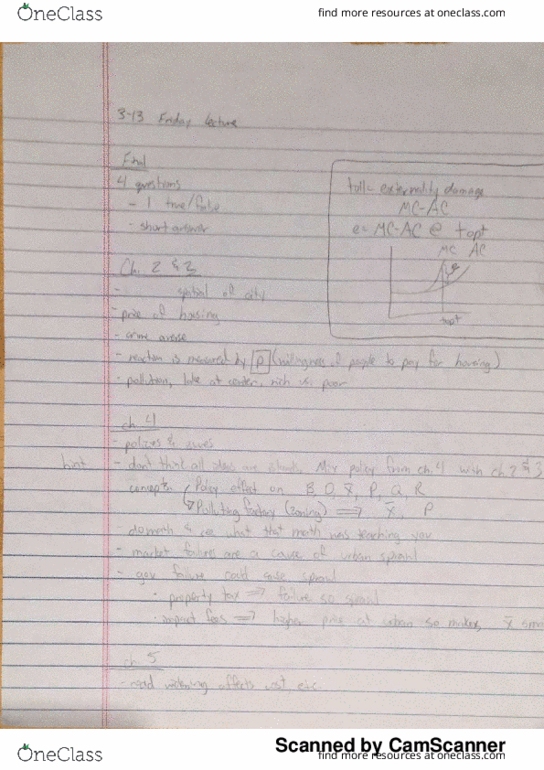 OneClass
find more resources at oneclass.com
3-13 Friday lecture
Final
4 questions
- 1 true/false
- short answer
toll = externality damage
MC-AC
e = MC-AC @ topt
MC AC
topt
Ch. 2 & 3
- spatial of city
- price of housing
- crime
- reaction is measured by P (willingness of people to pay for housing)
- pollution, lake at center, rich vs. poor
ch 4
- policies &
hint - don't think all ideas are Mix policy from ch. 4 with ch 2 & 3
concepts Policy effect on B, D, x̄, P, Q, R
Polluting factory (zoning) ⟹ x̄, P
- do math & see what that math was teaching you
- market failures are a cause of urban sprawl
- gov failure could cause sprawl
· property tax ⟹ failure so sprawl
· impact fees ⟹ higher price at urban so makes x̄
ch 5
- road widening effects cost etc
OneClass
Scanned by CamScanner
find more resources at oneclass.com